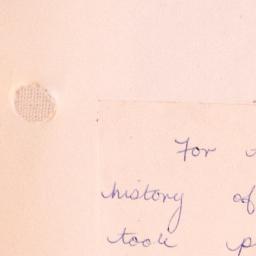 For
history of
took